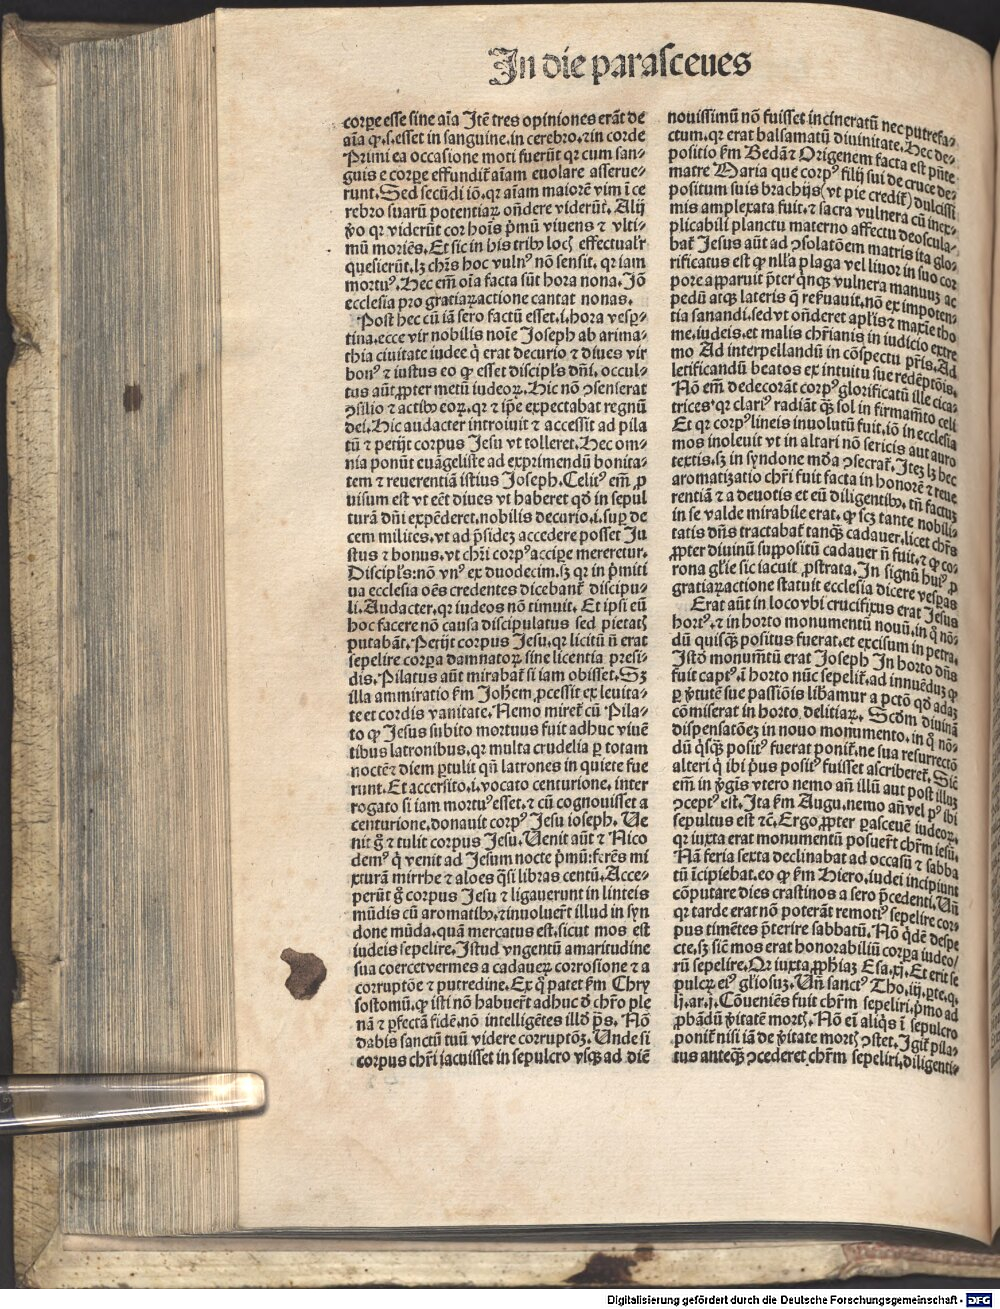 In die parasceues
corpe esse sine aīa Itē tres opiniones erāt de
aīa ꝙ.s.esset in sanguine.in cerebro.⁊in corde
Primi ea occasione moti fuerūt qr cum san⸗
guis e corpe effundit᷑ aīam euolare asserue⸗
runt. Sed secūdi iō.qr aīam maiorē vim ī ce
rebro suarū potentiaꝝ oñdere viderūt. Alij
ṽo qr viderūt cor hoīs p̄mū viuens ⁊ vlti⸗
mū moriēs. Et sic in his tribꝰ locꝭ effectualr̄
quesierūt.lꝫ chr̄s hoc vulnꝰ nō sensit. qr iam
mortuꝰ. Hec em̄ oīa facta sūt hora nona. Iō
ecclesia pro gratiaꝝactione cantat nonas.
Post hec cū iā sero factū esset.i.hora vesp⸗
tina.ecce vir nobilis noīe Joseph ab arima⸗
thia ciuitate iudee q̄ erat decurio ⁊ diues vir
bonꝰ ⁊ iustus eo ꝙ esset discipl's dñi. occul⸗
tus aūt ꝓpter metū iudeoꝝ. Hic nō ꝯsenserat
ꝯsilio ⁊ actibꝰ eoꝝ.qr ⁊ ip̄e expectabat regnū
dei. Hic audacter introiuit ⁊ accessit ad pila
tū ⁊ petijt corpus Jesu vt tolleret. Hec om⸗
nia ponūt euāgeliste ad exprimendū bonita⸗
tem ⁊ reuerentiā istius Joseph. Celitꝰ em̄ ꝓ
uisum est vt eēt diues vt haberet qd̄ in sepul
turā dñi expēderet.nobilis decurio.i.suꝑ de
cem milites.vt ad p̄sideꝫ accedere posset Iu
stus ⁊ bonus.vt chr̄i corpꝰ accipe mereretur.
Discipl's:nō vnꝰ ex duodecim.sꝫ qr in p̄miti
ua ecclesia oēs credentes dicebant᷑ discipu⸗
li. Audacter.qr iudeos nō timuit. Et ipsi eū
hoc facere nō causa discipulatus sed pietatꝭ
putabāt. Petijt corpus Jesu.qr licitū ñ erat
sepelire corpa damnatoꝝ sine licentia presi⸗
dis. Pilatus aūt mirabat᷑ si iam obisset. Sꝫ
illa ammiratio fm̄ Joh̄em ꝓcessit ex leuita⸗
te et cordis vanitate. Nemo miret᷑ cū Pila⸗
to ꝙ Jesus subito mortuus fuit adhuc viuē
tibus latronibus.qr multa crudelia ꝑ totam
noctē⁊ diem ꝑtulit qn̄ latrones in quiete fue
runt. Et accersito.i.vocato centurione. inter
rogato si iam mortuꝰesset.⁊ cū cognouisset a
centurione.donauit corpꝰ Jesu ioseph. Ve
nit g̃ ⁊ tulit corpus Jesu. Uenit aūt ⁊ Nico
demꝰ q̄ venit ad Jesum nocte p̄mū:ferēs mi
xturā mirrhe ⁊ aloes q̄si libras centū. Acce⸗
perūt g̃ corpus Jesu ⁊ ligauerunt in linteis
mūdis cū aromatibꝰ.⁊inuoluer̄t illud in syn
done mūda.quā mercatus est.sicut mos est
iudeis sepelire. Istud vngentū amaritudine
sua coercetvermes a cadaueꝝ corrosione ⁊ a
corruptōe ⁊ putredine. Ex q̊ patet fm̄ Chry
sostomū.ꝙ isti nō habuer̄t adhuc d̄ chr̄o ple
nā ⁊ ꝑfectā fidē.nō intelligētes illd̄ ps̄. Nō
dabis sanctū tuū videre corruptōꝫ. Unde si
corpus chr̄i iacuisset in sepulcro vsqꝫ ad diē
nouissimū nō fuisset incineratū nec putrefa⸗
ctum.qr erat balsamatū diuinitate. Hec de⸗
positio fm̄ Bedā⁊ Origenem facta est p̄nte
matre Maria que corpꝰ filij sui de cruce de⸗
positum suis brachijs(vt pie credit᷑) dulcissi
mis amplexata fuit.⁊ sacra vulnera cū inex⸗
plicabili planctu materno affectu deoscula⸗
bat᷑ Jesus aūt ad ꝯsolatōem matris ita glo⸗
rificatus est ꝙ nlla plaga vel liuor in suo cor
pore apparuit p̄ter q̄nqꝫ vulnera manuuꝫ ac
pedū atqꝫ lateris q̄ reẜuauit.nō ex impoten⸗
tia sanandi.sed vt oñderet apl'is ⁊ maxīe tho
me.iudeis.et malis chr̄ianis in iudicio extre
mo Ad interpellandū in cōspectu pr̄is. Ad
letificandū beatos ex intuitu sue redēptōis.
Nō em̄ dedecorāt corpꝰ glorificatū ille cica⸗
trices qr clariꝰ radiāt q̄ꝫ sol in firmam̄to celi
Et qr corpꝰ lineis inuolutū fuit.iō in ecclesia
mos inoleuit vt in altari nō sericis aut auro
textis.sꝫ in syndone mūda ꝯsecrat᷑. Iteꝫ lꝫ hec
aromatizatio chr̄i fuit facta in honorē ⁊ reue
rentiā ⁊ a deuotis et eū diligentibꝰ. tn̄ factuꝫ
in se valde mirabile erat. ꝙ scꝫ tante nobili⸗
tatis dñs tractabat᷑ tanqꝫ cadauer.licet chr̄s
ꝓpter diuinū suppositū cadauer ñ fuit.⁊ ꝙ co⸗
rona gl'ie sic iacuit ꝓstrata. In signū huiꝰ ꝓ
gratiaꝝactione statuit ecclesia dicere vesꝑas
Erat aūt in loco vbi crucifixus erat Jesus
hortꝰ.⁊ in horto monumentū nouū.in q̊ nō⸗
dū quisqꝫ positus fuerat.et excisum in petra.
Istd̄ monum̄tū erat Joseph In horto dñs
fuit captꝰ.ī horto nūc sepelit᷑.ad innuēduꝫ ꝙ
ꝑ ṽtutē sue passiōis lib̄amur a pctō qd̄ adaꝫ
cōmiserat in horto delitiaꝝ. Scd̄m diuinā
dispensatōeꝫ in nouo monumento.in q̊ nō⸗
dū q̄sqꝫ positꝰ fuerat ponit᷑.ne sua resurrectō
alteri q̄ ibi p̄us positꝰ fuisset ascriberet᷑. Sic̄
em̄ in ṽgīs vtero nemo an̄ illū aut post illuꝫ
ꝯceptꝰ est. Ita fm̄ Augu.nemo an̄vel pꝰ ibi
sepultus est ⁊c̄. Ergo ꝓpter parasceuē iudeoꝝ.
qr iuxta erat monumētū posuer̄t chr̄m iesū.
Nā feria sexta declinabat ad occasū ⁊ sabba
tū īcipiebat.eo ꝙ fm̄ Hiero.iudei incipiunt
cōputare dies crastinos a sero p̄cedenti. Un̄
qr tarde erat nō poterāt remotiꝰ sepelire cor⸗
pus timētes p̄terire sabbatū. Nō q̄dē despe
cte.sꝫ sic̄ mos erat honorabiliū corpa iudeo⸗
rū sepelire. Qr iuxta ꝓph̄iaꝫ Esa.xj. Et erit se
pulcꝝ eiꝰ gl'iosuꝫ. Un̄ sanctꝰ Tho.iij.ꝑte.q.
lj.ar.j. Cōueniēs fuit chr̄m sepeliri.p̄mo ad
ꝓbādū ṽitatē mortꝭ. Nō eī aliq̄s ī sepulcro
ponit᷑ nisi iā de ṽitate mortꝭ ꝯstet. Igit᷑ pila⸗
tus anteqꝫ ꝯcederet chr̄m sepeliri.diligenti⸗
Digitalisierung gefördert durch die Deutsche Forschungsgemeinschaft - DFG